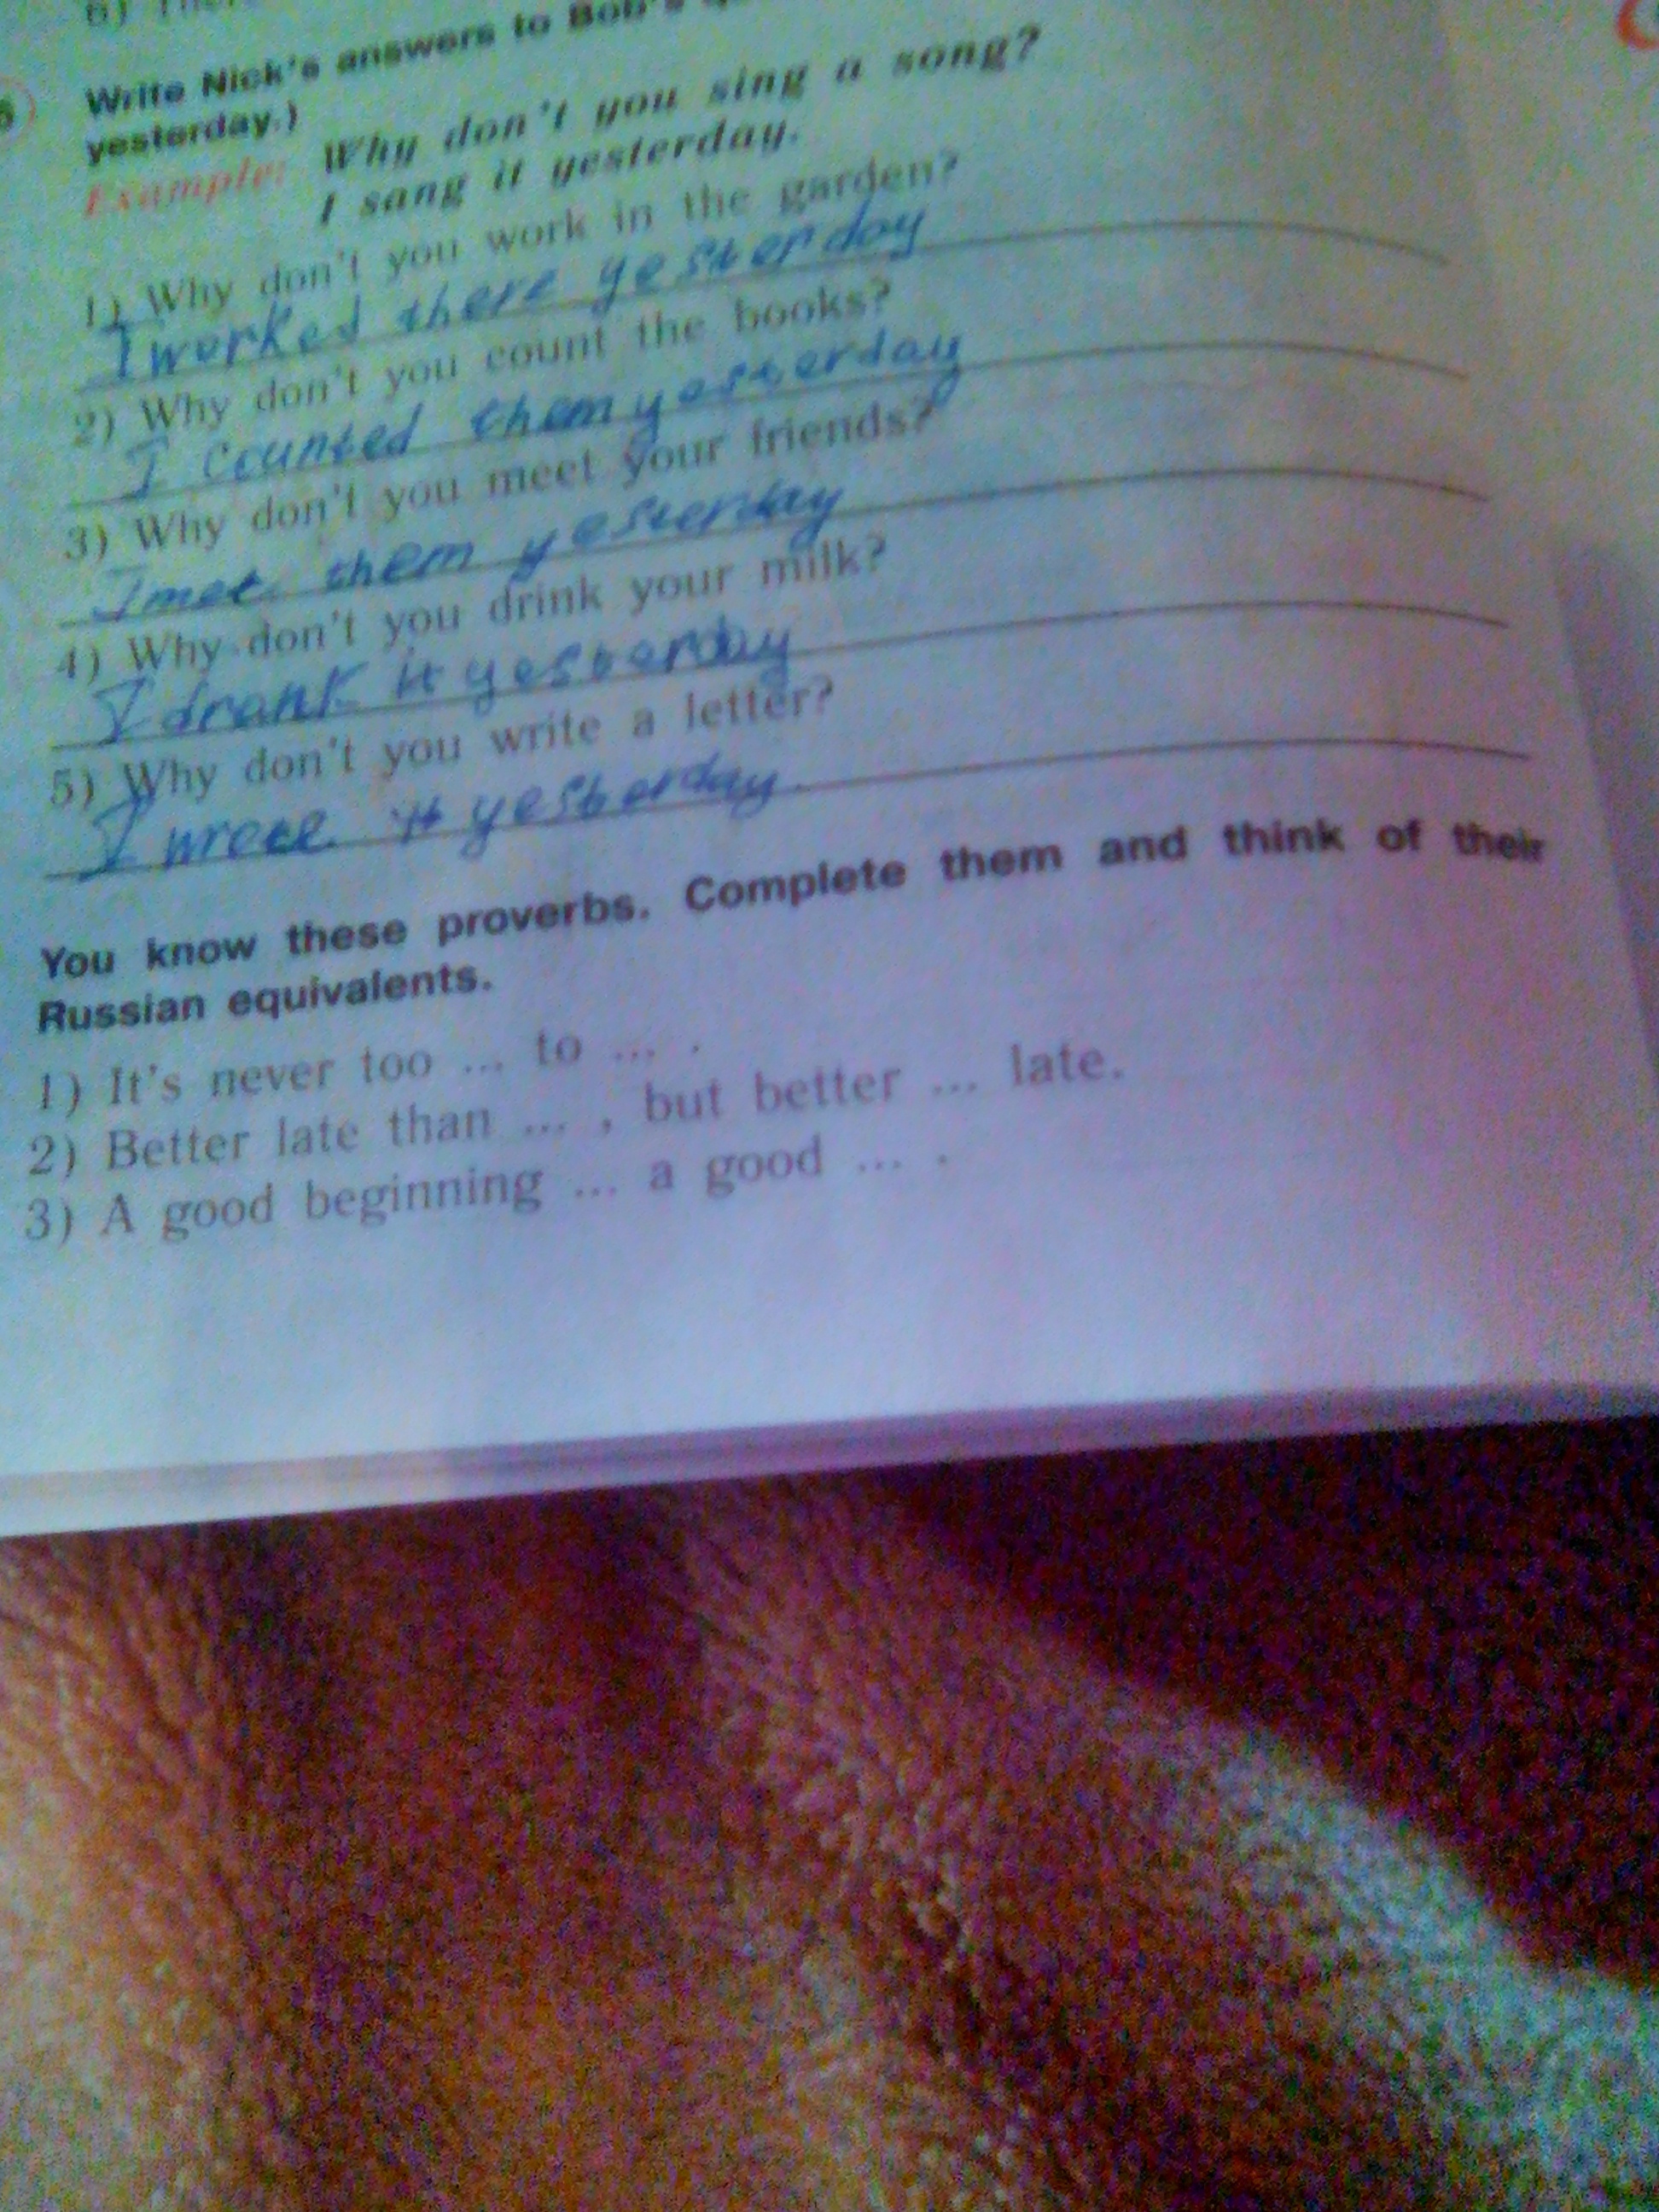 Write Nick's answers to Bob's
yesterday.)
Example: Why don't you sing a song?
I sang it yesterday.
1) Why don't you work in the garden?
I worked there yesterday
2) Why don't you count the books?
I counted them yesterday
3) Why don't you meet your friends?
I met them yesterday
4) Why don't you drink your milk?
I drank it yesterday
5) Why don't you write a letter?
I it yesterday.
You know these proverbs. Complete them and think of their
Russian equivalents.
1) It's never too ... to ... .
2) Better late than ... , but better ... late.
3) A good beginning ... a good ... .